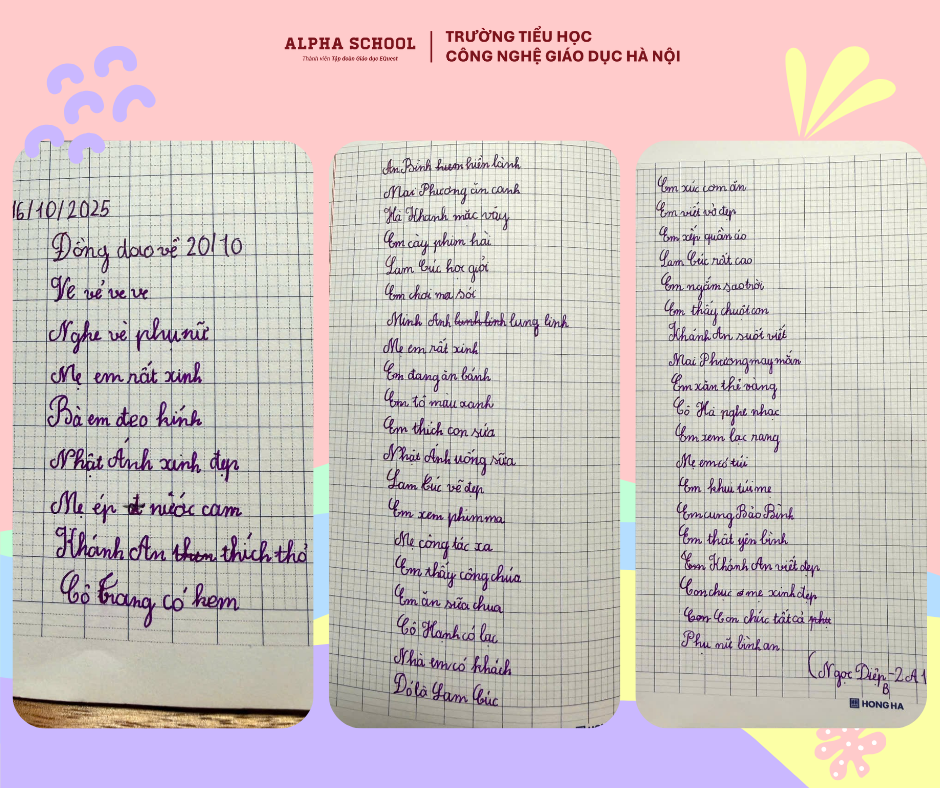 ALPHA SCHOOL
Thành viên Tập đoàn Giáo dục EQuest
TRƯỜNG TIỂU HỌC
CÔNG NGHỆ GIÁO DỤC HÀ NỘI
16/10/2025
Đồng dao về 20/10
Ve vẻ ve ve
Nghe vè phụ nữ
Mẹ em rất xinh
Bà em đeo kính
Nhật Ánh xinh đẹp
Mẹ ép nước cam
Khánh An thích thỏ
Cô Trang có kem
An Bình hiền lành
Mai Phương ăn canh
Hà Khanh mặc váy
Em cày phim hài
Lam Cúc học giỏi
Em chơi ma sói
Minh Anh lung linh
Mẹ em rất xinh
Em đang ăn bánh
Em tô màu xanh
Em thích con sứa
Nhật Ánh uống sữa
Lam Cúc vẽ đẹp
Em xem phim ma
Mẹ công tác xa
Em thấy công chúa
Em ăn sữa chua
Cô Hạnh có lạc
Nhà em có khách
Đó là Lam Cúc
Em xúc cơm ăn
Em viết vở đẹp
Em xếp quần áo
Lam Cúc rất cao
Em ngắm sao trời
Em thấy chuột con
Khánh An suốt viết
Mai Phương may mắn
Em xăn thẻ vàng
Cô Hà nghe nhạc
Em xem lạc rang
Mẹ em có túi
Em khui túi mẹ
Em cung Bảo Bình
Em thật yên bình
Em Khánh An viết đẹp
Con chúc mẹ xinh đẹp
Con chúc tất cả
Phụ nữ bình an
(Ngọc Diệp - 2A1
B
HONG HA